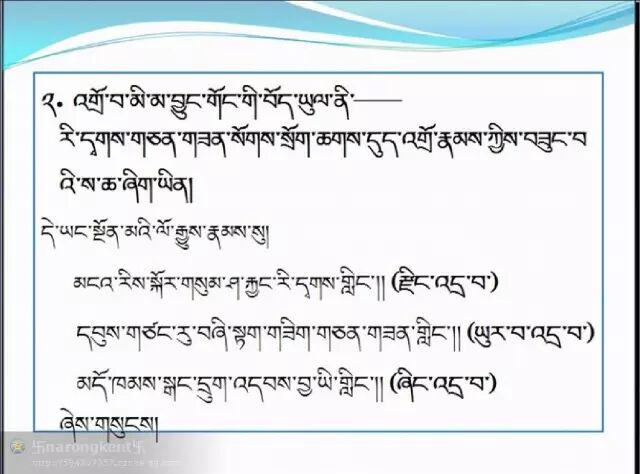 ༢. འགྲོ་བ་མི་མ་བྱུང་གོང་གི་བོད་ཡུལ་ནི་——
རི་དྭགས་གཅན་གཟན་སོགས་སྲོག་ཆགས་དུད་འགྲོ་རྣམས་ཀྱིས་བཟུང་བ
འི་ས་ཆ་ཞིག་ཡིན།
དེ་ཡང་སྔོན་མའི་ལོ་རྒྱུས་རྣམས་སུ།
མངའ་རིས་སྐོར་གསུམ་ཤ་རྐྱང་རི་དྭགས་གླིང་།། (རྫིང་འདྲ་བ་)
དབུས་གཙང་རུ་བཞི་སྟག་གཟིག་གཅན་གཟན་གླིང་།། (ཡུར་བ་འདྲ་བ་)
མདོ་ཁམས་སྒང་དྲུག་འདབས་བྱ་ཡི་གླིང་།། (ཞིང་འདྲ་བ་)
ཞེས་གསུངས།
乐narongkent乐